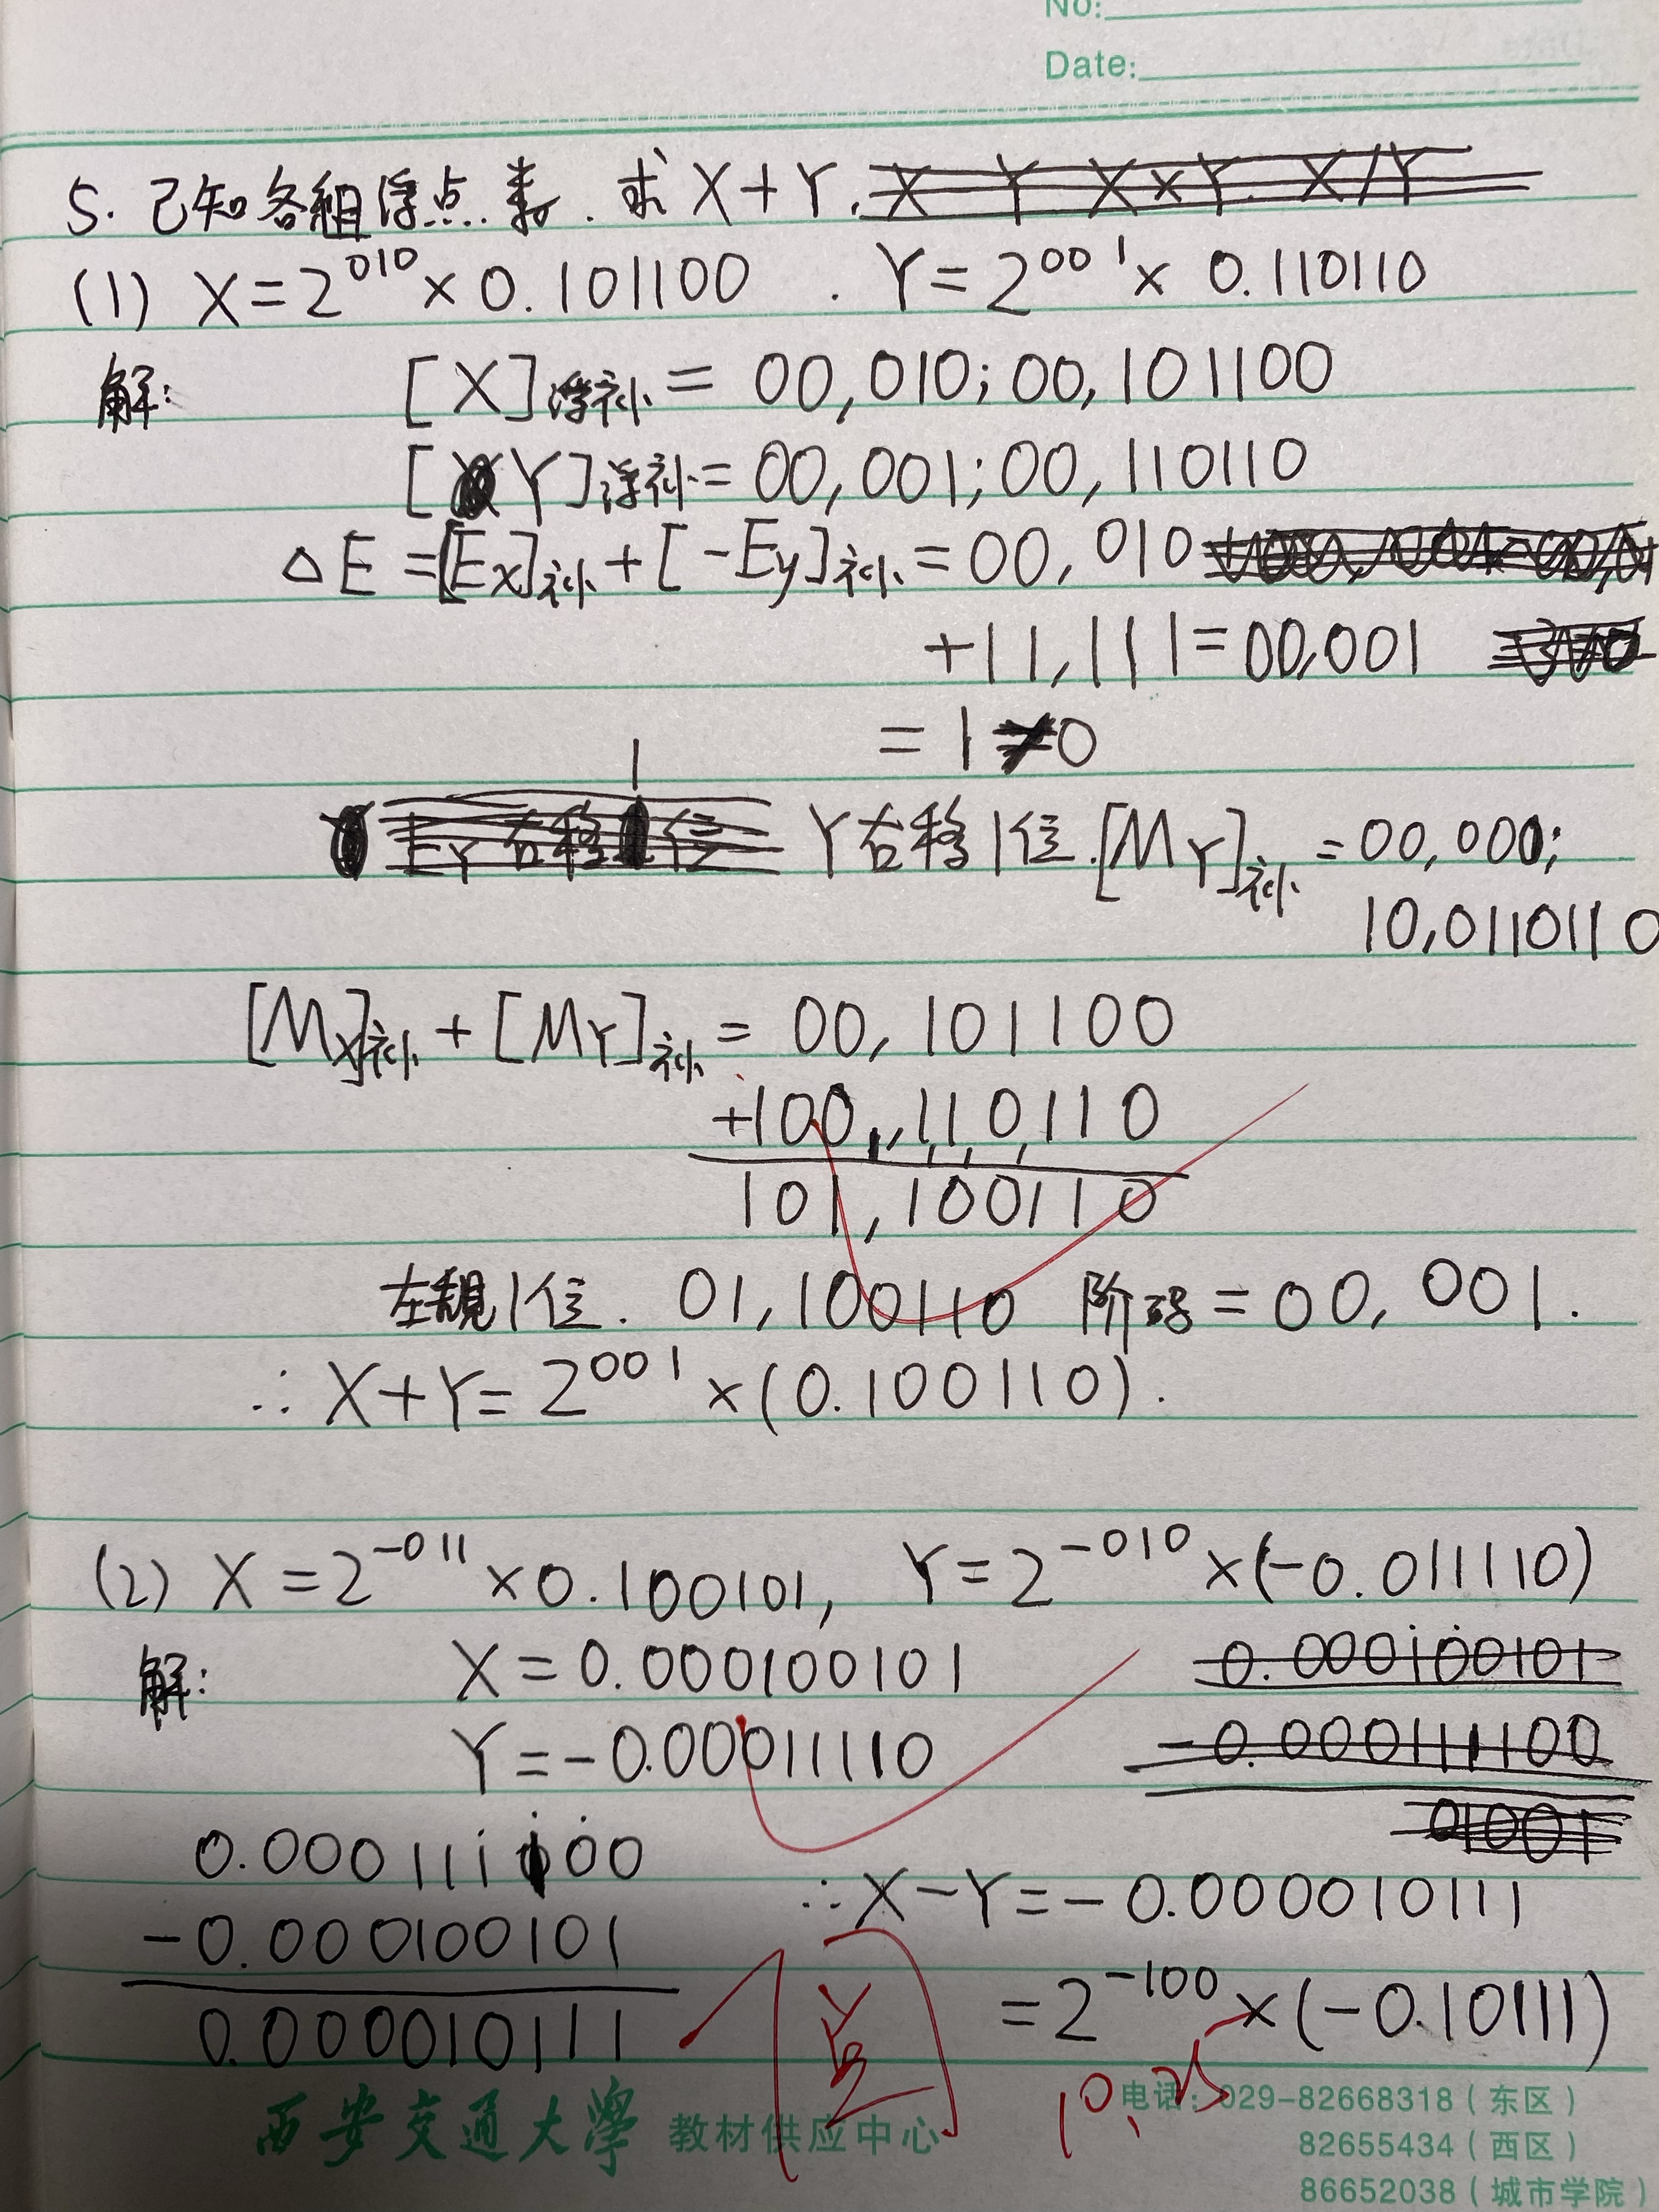 No:
Date:
5. 已知各组浮点数. 求 X+Y. X-Y X×Y. X/Y
(1) X=2^010×0.101100 . Y=2^001×0.110110
解: [X]浮补=00,010;00,101100
[Y]浮补=00,001;00,110110
△E=[Ex]补+[-Ey]补=00,010
+11,111=00,001
=1≠0
Ey右移1位 Y右移1位.[MY]补=00,000;
10,0110110
[Mx]补+[MY]补=00,101100
+100,110110
101,100110
左规1位. 01,100110 阶码=00,001.
∴X+Y=2^001×(0.100110).
(2) X=2^-011×0.100101, Y=2^-010×(-0.011110)
解: X=0.000100101 0.000100101
Y=-0.00011110 -0.000111100
01001
0.000111100
-0.000100101
0.000010111
∴X-Y=-0.000010111
=2^-100×(-0.10111)
阅
10.25
西安交通大学 教材供应中心
电话:029-82668318(东区)
82655434(西区)
86652038(城市学院)